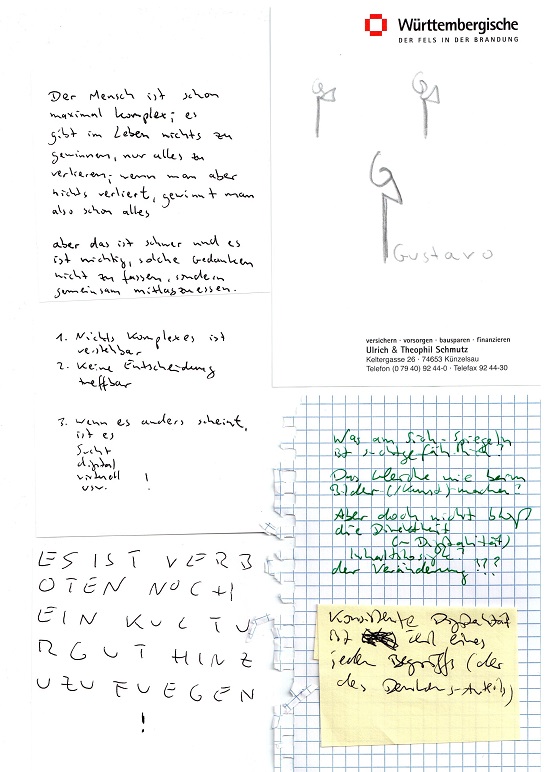 Der Mensch ist schon
maximal komplex; es
gibt im Leben nichts zu
gewinnen, nur alles zu
verlieren; wenn man aber
nichts verliert, gewinnt man
also schon alles
aber das ist schwer und es
ist wichtig, solche Gedanken
nicht zu fassen, sondern
gemeinsam mittagzuessen.
1. Nichts Komplexes ist
verstehbar
2. Keine Entscheidung
treffbar
3. wenn es anders scheint,
ist es
Sucht
digital
virtuell
usw. !
ES IST VERB
OTEN NOCH
EIN KULTU
RGUT HINZ
UZUFUEGEN
!
Württembergische
DER FELS IN DER BRANDUNG
G
G
G
Gustavo
versichern · vorsorgen · bausparen · finanzieren
Ulrich & Theophil Schmutz
Keltergasse 26 · 74653 Künzelsau
Telefon (0 79 40) 92 44-0 · Telefax 92 44-30
Was am Sich-Spiegeln
ist suchtgefährlich?
Das Gleiche wie beim
Bilder-(/Kunst)-machen?
Aber doch nicht bloß
die Direktheit
(~ Digitalität)
Inhaltslosigk.?
der Veränderung!!?
Konsistente Digitalität
ist Teil eines
jeden Begriffs (der
des Denkens-Anteils)